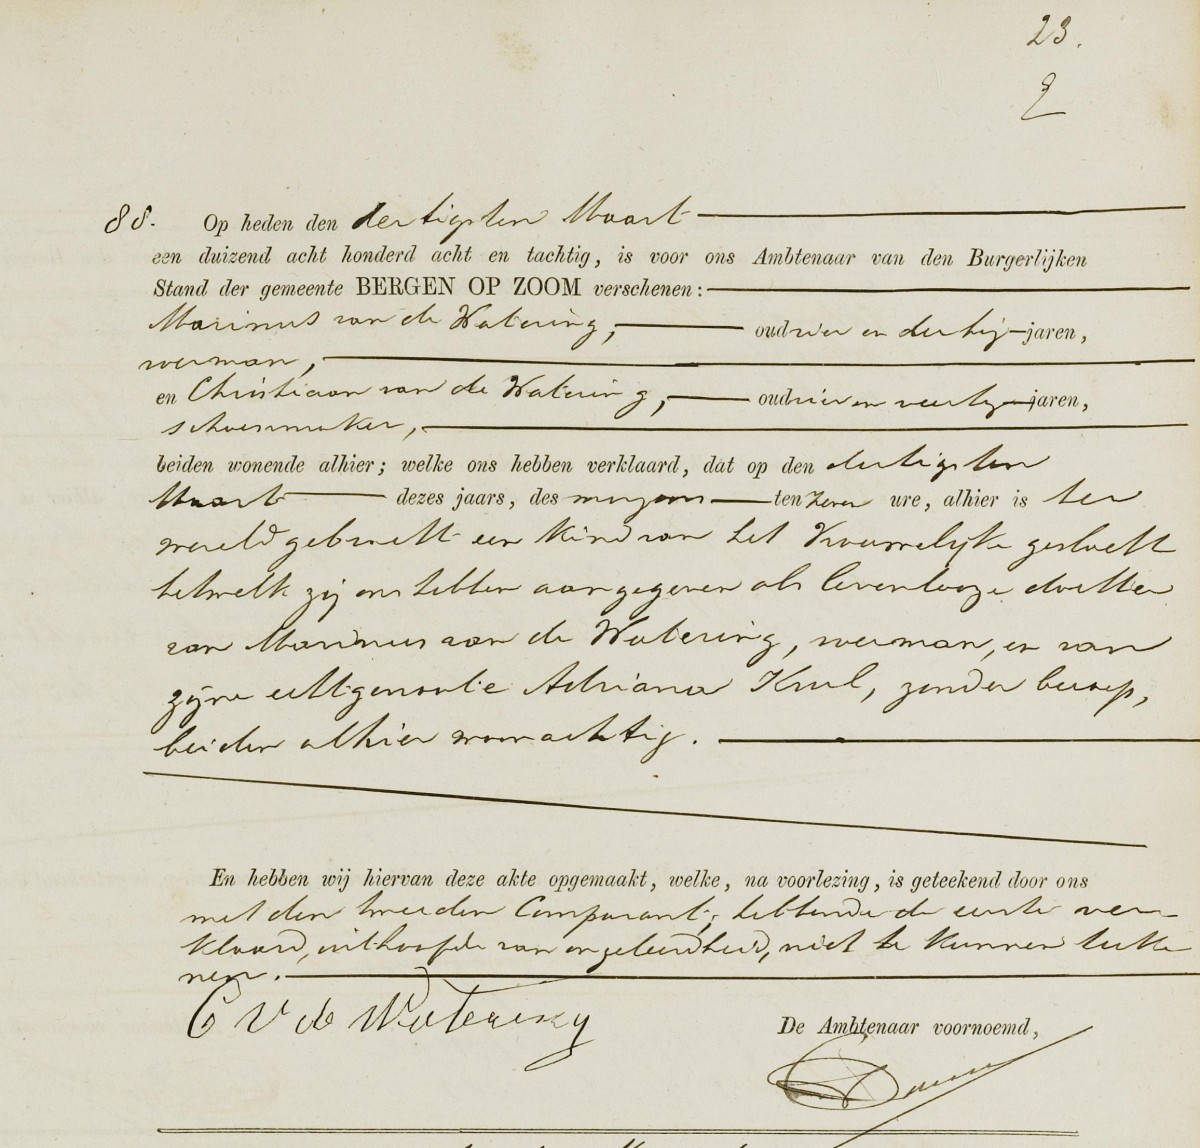 23.
88. Op heden den dertigsten Maart
een duizend acht honderd acht en tachtig, is voor ons Ambtenaar van den Burgerlijken
Stand der gemeente BERGEN OP ZOOM verschenen:
Marinus van de Watering, oud vier en dertig jaren,
voerman,
en Christiaan van de Watering, oud vier en veertig jaren,
schoenmaker,
beiden wonende alhier; welke ons hebben verklaard, dat op den dertigsten
Maart dezes jaars, des morgens ten zeven ure, alhier is ter
wereld gebracht een kind van het Vrouwelijke geslacht
hetwelk zij ons hebben aangegeven als levenlooze dochter
van Marinus van de Watering, voerman, en van
zijne echtgenoote Adriana Krul, zonder beroep,
beiden alhier woonachtig.
En hebben wij hiervan deze akte opgemaakt, welke, na voorlezing, is geteekend door ons
met den tweeden Comparant; hebbende de eerste ver-
klaard, uithoofde van ongeleerdheid, niet te kunnen teeke
nen.
C V de Watering
De Ambtenaar voornoemd,